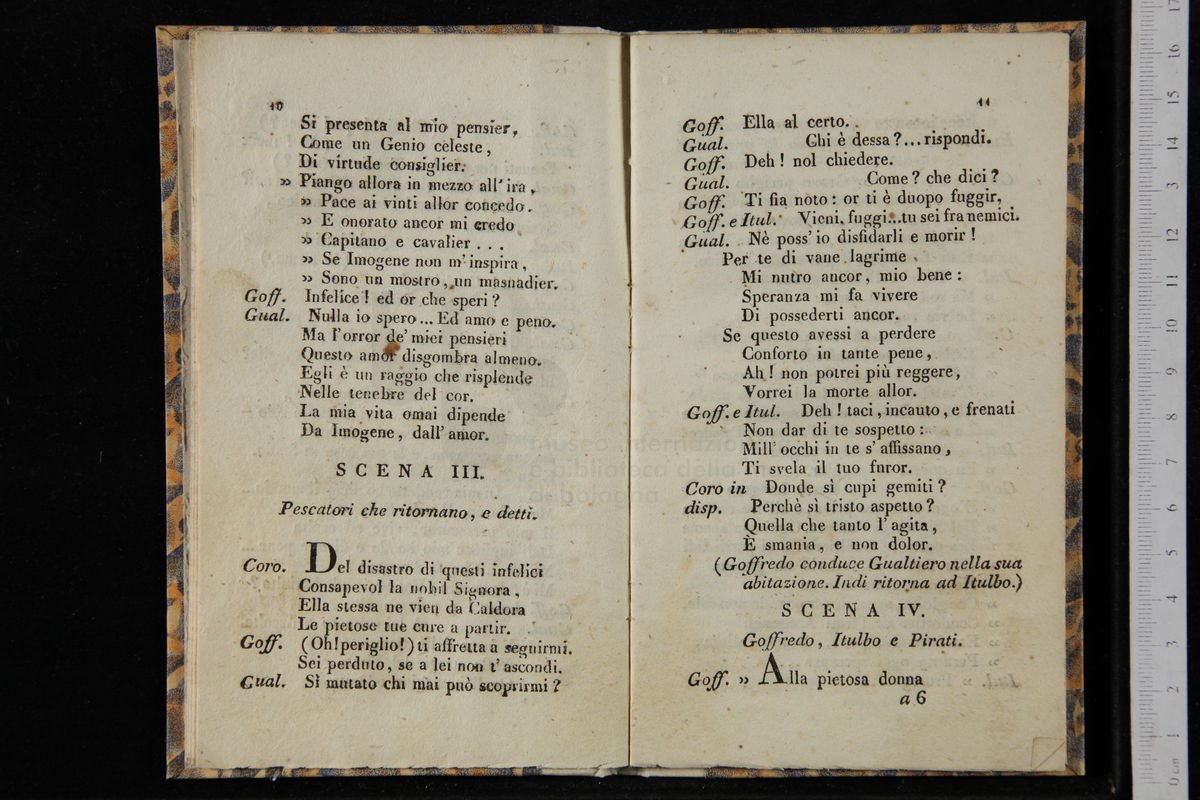 10
Si presenta al mio pensier,
Come un Genio celeste,
Di virtude consiglier.
» Piango allora in mezzo all'ira,
» Pace ai vinti allor concedo.
» E onorato ancor mi credo
» Capitano e cavalier . . .
» Se Imogene non m'inspira,
» Sono un mostro, un masnadier.
Goff. Infelice! ed or che speri?
Gual. Nulla io spero... Ed amo e peno.
Ma l'orror de' miei pensieri
Questo amor disgombra almeno.
Egli è un raggio che risplende
Nelle tenebre del cor.
La mia vita omai dipende
Da Imogene, dall'amor.
SCENA III.
Pescatori che ritornano, e detti.
Coro. Del disastro di questi infelici
Consapevol la nobil Signora,
Ella stessa ne vien da Caldora
Le pietose tue cure a partir.
Goff. (Oh! periglio!) ti affretta a seguirmi.
Sei perduto, se a lei non t'ascondi.
Gual. Sì mutato chi mai può scoprirmi?
11
Goff. Ella al certo.
Gual. Chi è dessa?... rispondi.
Goff. Deh! nol chiedere.
Gual. Come? che dici?
Goff. Ti fia noto: or ti è duopo fuggir,
Goff. e Itul. Vieni, fuggi...tu sei fra nemici.
Gual. Nè poss'io disfidarli e morir!
Per te di vane lagrime
Mi nutro ancor, mio bene:
Speranza mi fa vivere
Di possederti ancor.
Se questo avessi a perdere
Conforto in tante pene,
Ah! non potrei più reggere,
Vorrei la morte allor.
Goff. e Itul. Deh! taci, incauto, e frenati
Non dar di te sospetto:
Mill'occhi in te s'affissano,
Ti svela il tuo furor.
Coro in Donde sì cupi gemiti?
disp. Perchè sì tristo aspetto?
Quella che tanto l'agita,
È smania, e non dolor.
(Goffredo conduce Gualtiero nella sua
abitazione. Indi ritorna ad Itulbo.)
SCENA IV.
Goffredo, Itulbo e Pirati.
Goff. » Alla pietosa donna
a 6